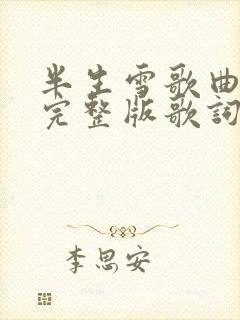 半生雪歌曲
完整版歌詞
李思安